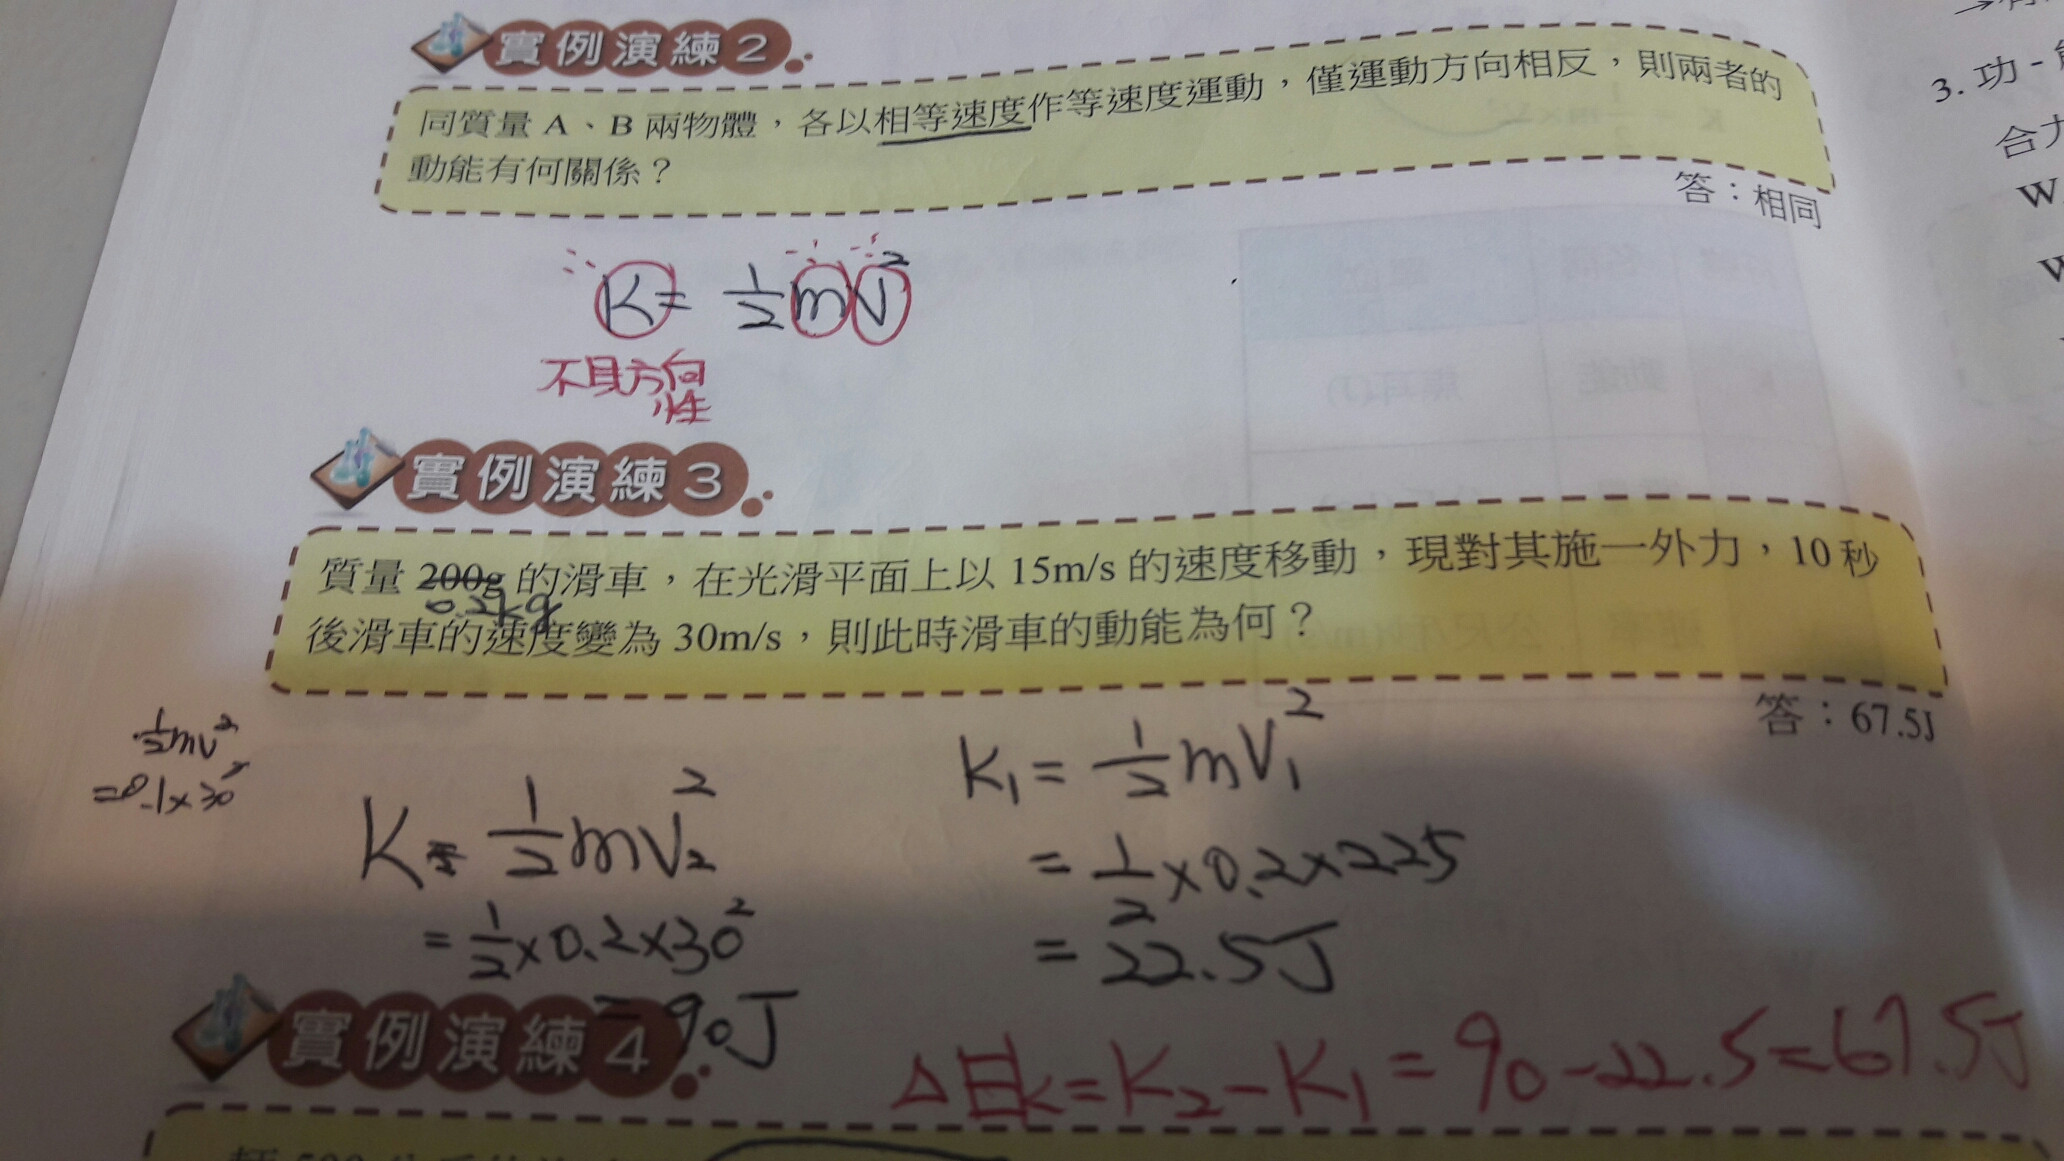 實例演練2
同質量 A、B 兩物體，各以相等速度作等速度運動，僅運動方向相反，則兩者的
動能有何關係？
答：相同
K = 1/2 m v²
不具方向
性
實例演練3
質量 200g 的滑車，在光滑平面上以 15m/s 的速度移動，現對其施一外力，10 秒
0.2kg
後滑車的速度變為 30m/s，則此時滑車的動能為何？
答：67.5J
1/2 mv²
= 0.1×30²
K₂ = 1/2 mV₂²
= 1/2 × 0.2 × 30²
= 90J
K₁ = 1/2 mV₁²
= 1/2 × 0.2 × 225
= 22.5J
ΔEk = K₂ - K₁ = 90 - 22.5 = 67.5J
實例演練4
3. 功 -
合力
W
W